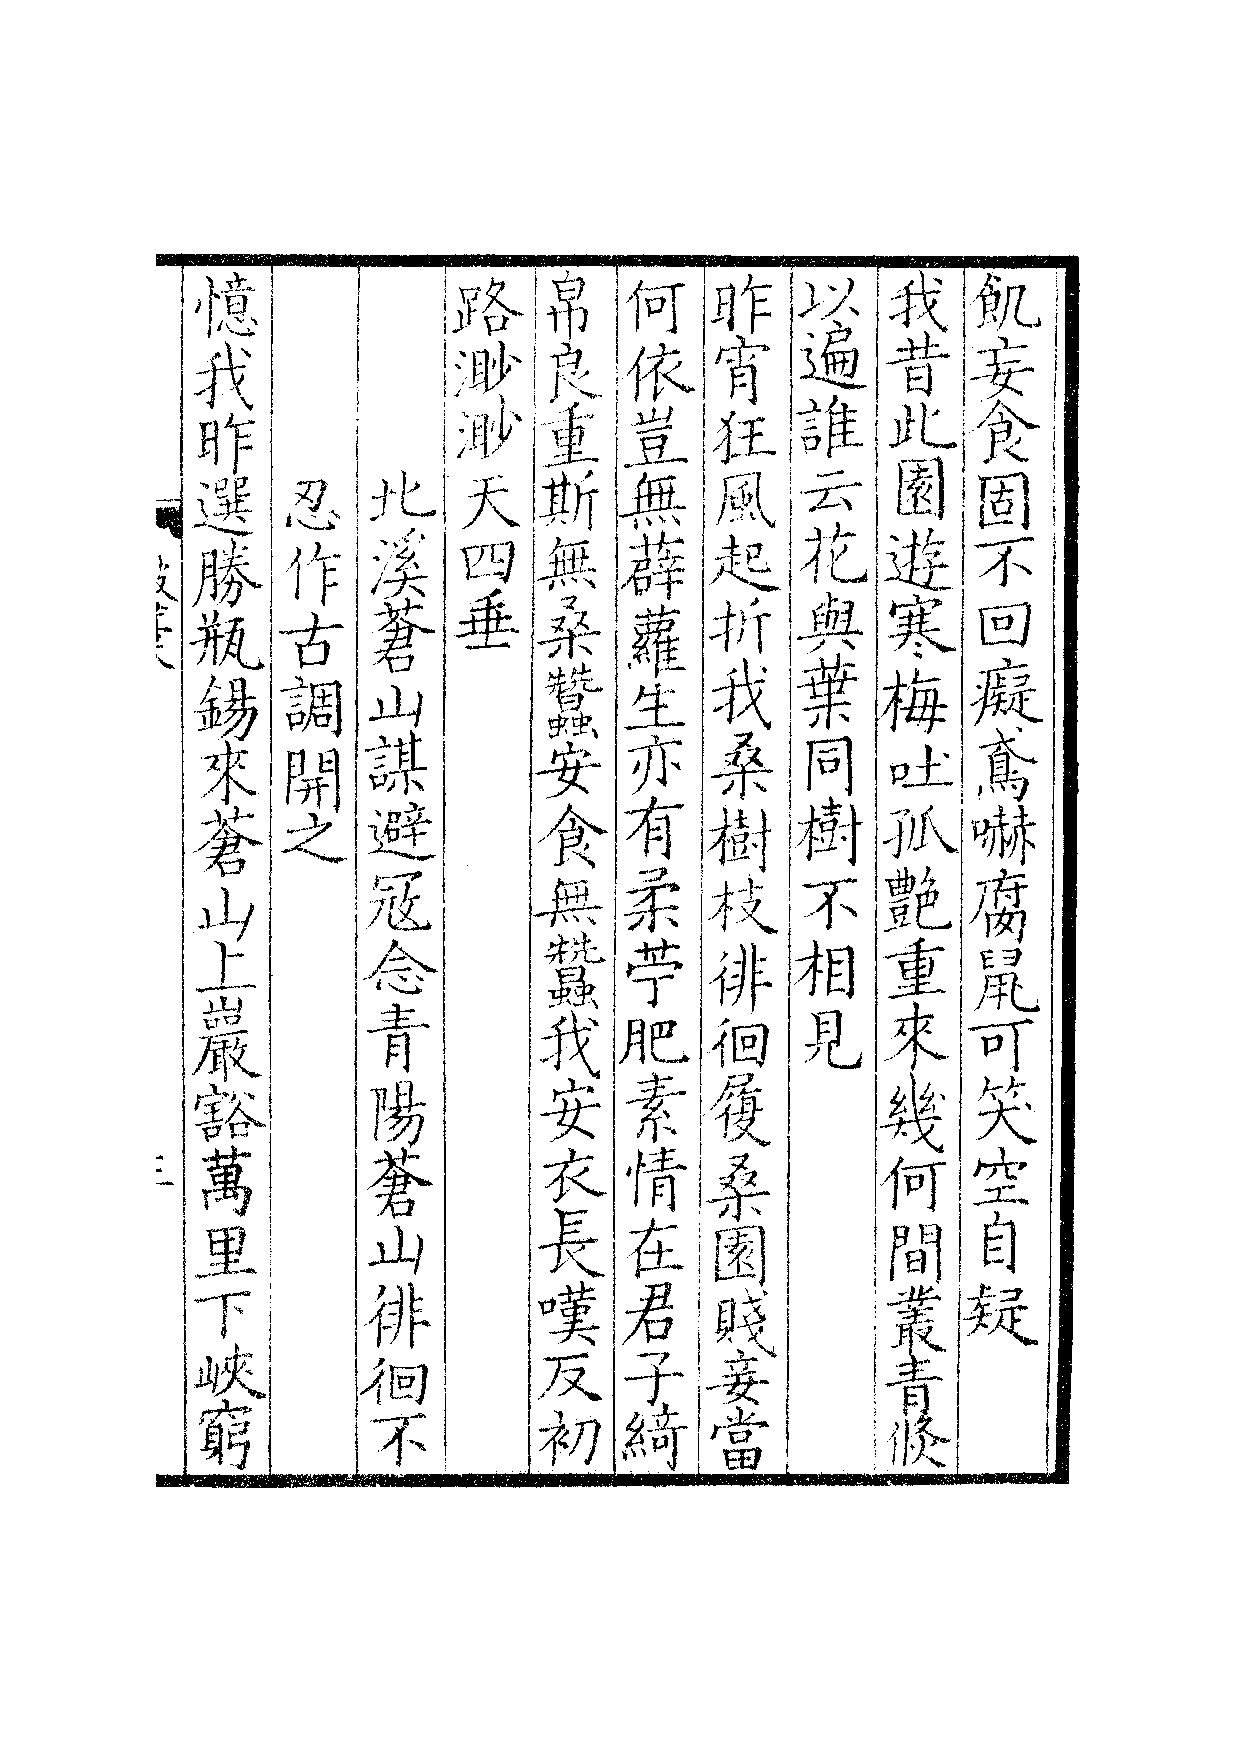 飢妄食固不回癡鳶嚇腐鼠可笑空自疑
我昔此園遊寒梅吐孤艷重來幾何間叢青倐
以遍誰云花與葉同樹不相見
昨宵狂風起折我桑樹枝徘徊履桑園賤妾當
何依豈無薜蘿生亦有柔苧肥素情在君子綺
帛良重斯無桑蠶安食無蠶我安衣長嘆反初
路渺渺天四垂
北溪蒼山謀避冦念青陽蒼山徘徊不
忍作古調開之
憶我昨選勝瓶錫來蒼山上巖豁萬里下峽窮